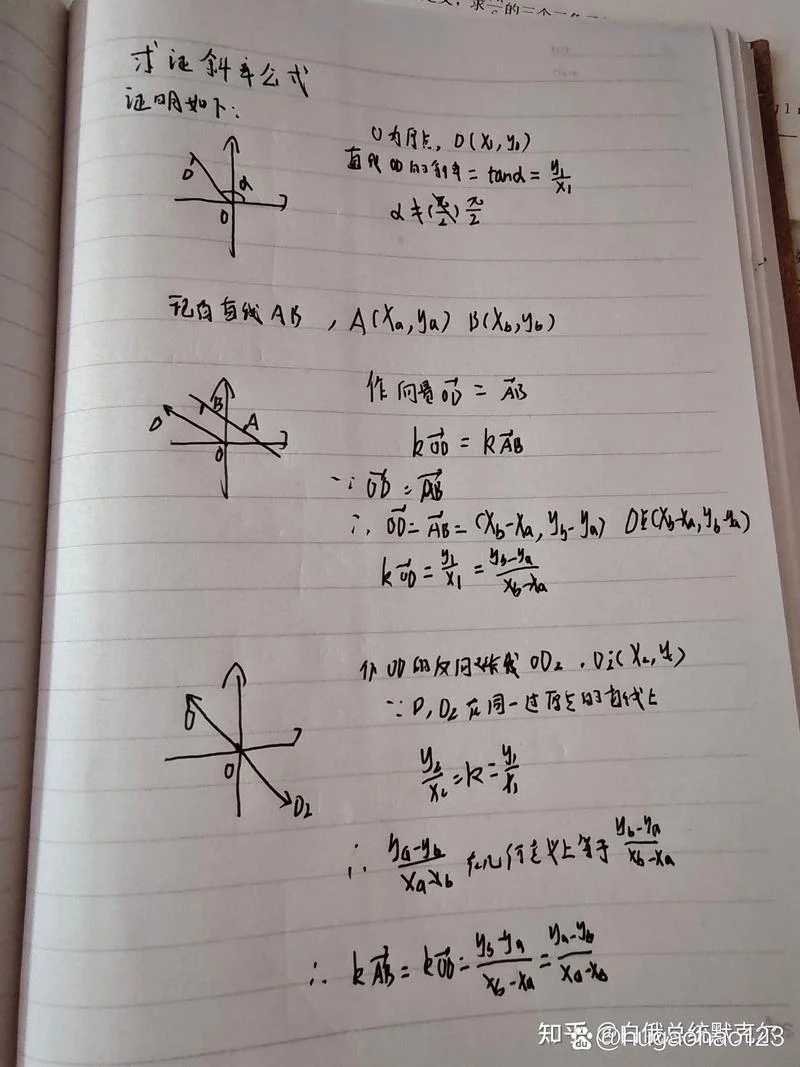 求
的三个
求证斜率公式
证明如下:
O为原点, D(x₁,y₁)
直线OD的斜率=tanα=y₁/x₁
α≠(π/2) π/2
D
α
O
现有直线AB , A(xa,ya) B(xb,yb)
作向量OD→ = AB→
D
B
A
O
kOD→ = kAB→
∵ OD→ = AB→
∴ OD→ = AB→ = (xb-xa, yb-ya) D(xb-xa, yb-ya)
kOD→ = y₁/x₁ = (yb-ya)/(xb-xa)
作OD的反向延长线OD₂ , D₂(x₂,y₂)
∵ D, D₂在同一过原点的直线上
D
O
D₂
y₂/x₂ = k = y₁/x₁
∴ (ya-yb)/(xa-xb) 在几何意义上等于 (yb-ya)/(xb-xa)
∴ kAB→ = kOD→ = (yb-ya)/(xb-xa) = (ya-yb)/(xa-xb)
知乎 @白俄总统默克尔
hugaohao123